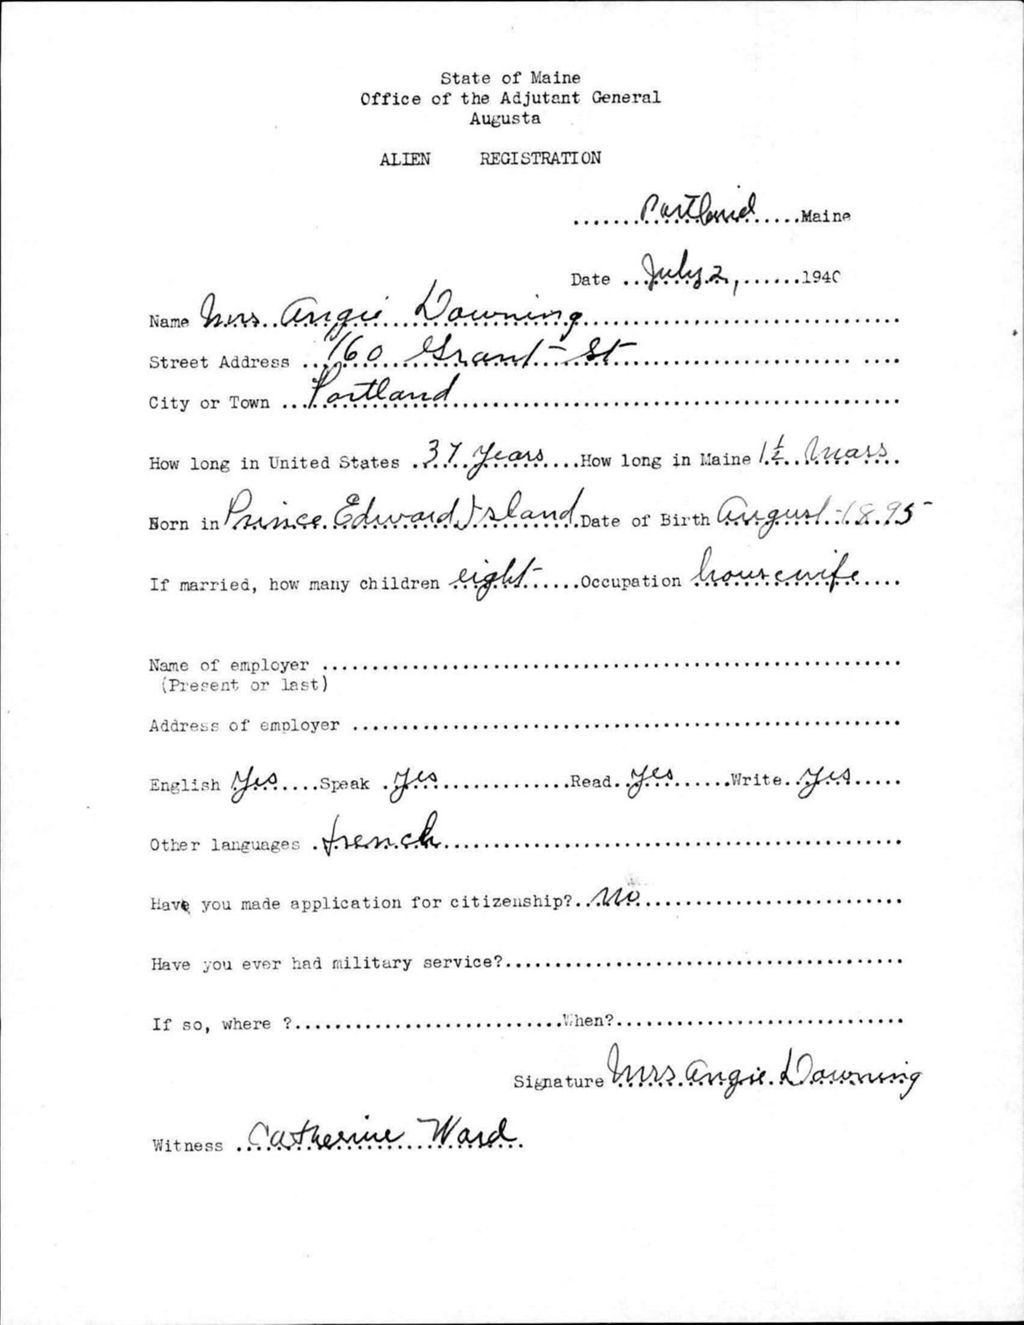 State of Maine
Office of the Adjutant General
Augusta
ALIEN REGISTRATION
.......Portland.....Maine
Date ...July 2,.......1940
Name Mrs. Angie Downing
Street Address ...160 Grant St
City or Town ...Portland
How long in United States .37 years....How long in Maine 1½ Mass.
Born in Prince Edward Island Date of Birth August 1895
If married, how many children eight......Occupation housewife....
Name of employer
(Present or last)
Address of employer
English Yes....Speak .yes...............Read..yes......Write..yes.....
Other languages .french
Have you made application for citizenship?..No.
Have you ever had military service?
If so, where ?...........................When?
Signature Mrs. Angie Downing
Witness ..Catherine Ward